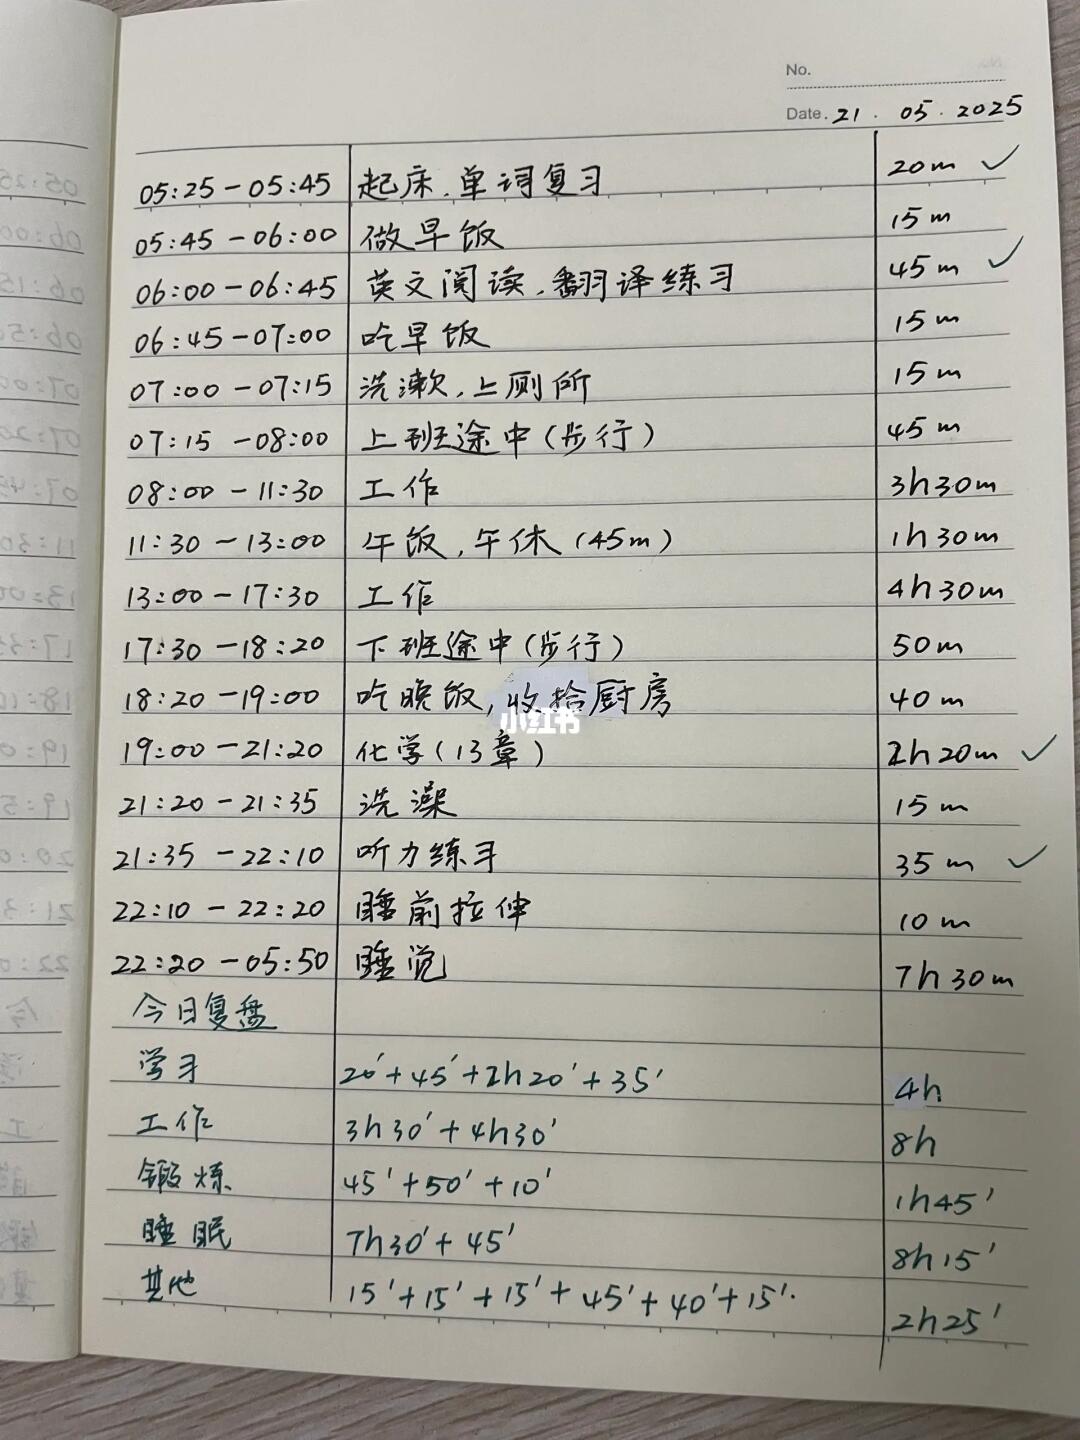 No.
Date. 21 . 05 . 2025
05:25 - 05:45 起床,单词复习 20m ✓
05:45 - 06:00 做早饭 15m
06:00 - 06:45 英文阅读,翻译练习 45m ✓
06:45 - 07:00 吃早饭 15m
07:00 - 07:15 洗漱,上厕所 15m
07:15 - 08:00 上班途中(步行) 45m
08:00 - 11:30 工作 3h30m
11:30 - 13:00 午饭,午休(45m) 1h30m
13:00 - 17:30 工作 4h30m
17:30 - 18:20 下班途中(步行) 50m
18:20 - 19:00 吃晚饭,收拾厨房 40m
小红书
19:00 - 21:20 化学(13章) 2h20m ✓
21:20 - 21:35 洗澡 15m
21:35 - 22:10 听力练习 35m ✓
22:10 - 22:20 睡前拉伸 10m
22:20 - 05:50 睡觉 7h30m
今日复盘
学习 20'+45'+2h20'+35' 4h
工作 3h30'+4h30' 8h
锻炼 45'+50'+10' 1h45'
睡眠 7h30'+45' 8h15'
其他 15'+15'+15'+45'+40'+15'. 2h25'